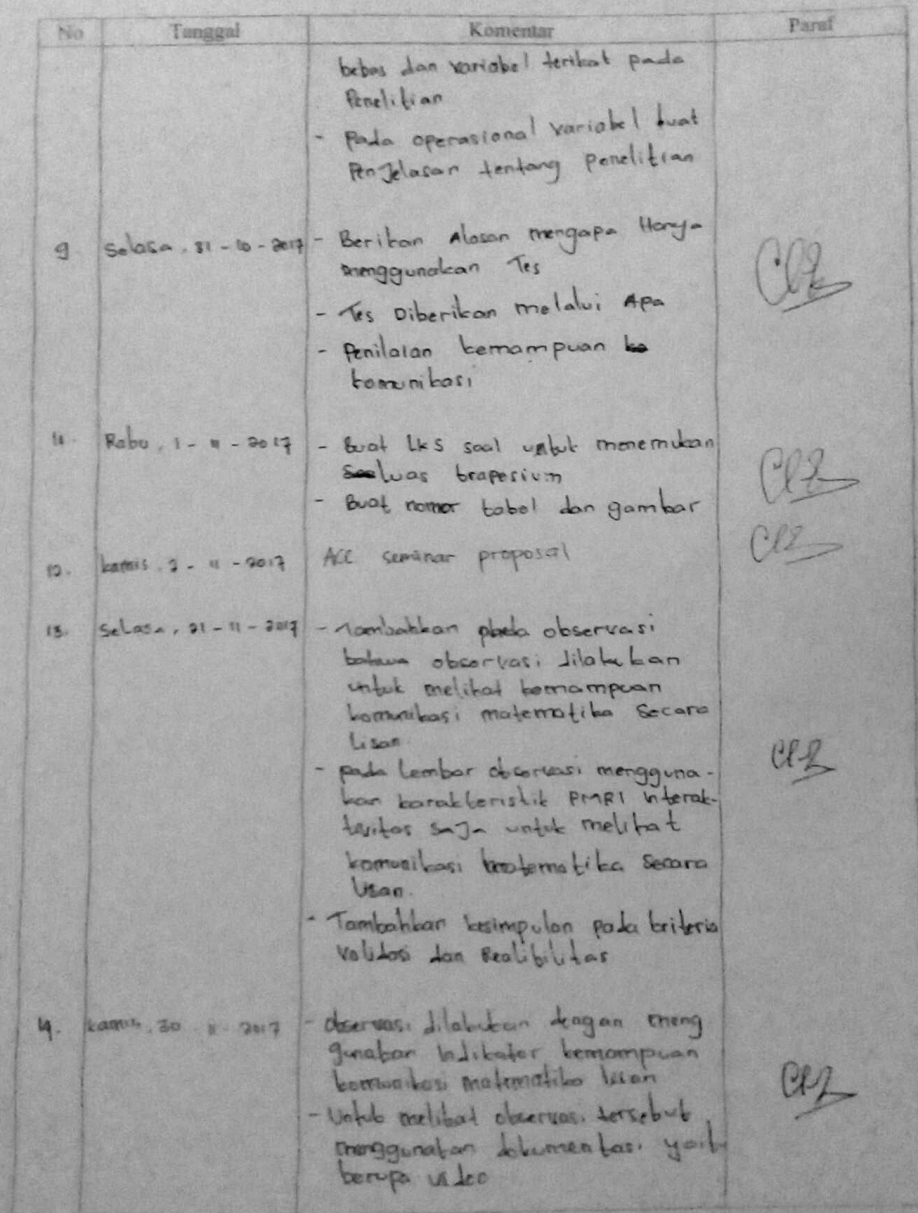 No Tanggal Komentar Paraf
bebas dan variabel terikat pada
Penelitian
- Pada operasional variabel buat
Penjelasan tentang penelitian
9. Selasa, 31 - 10 - 2017 - Berikan Alasan mengapa Hanya
menggunakan Tes
- Tes Diberikan melalui Apa
- Penilaian kemampuan
komunikasi
11. Rabu, 1 - 11 - 2017 - Buat LKS soal untuk menemukan
luas trapesium
- Buat nomor tabel dan gambar
12. kamis. 2 - 11 - 2017 ACC seminar proposal
13. Selasa, 21 - 11 - 2017 - Tambahkan pada observasi
bahwa observasi dilakukan
untuk melihat kemampuan
komunikasi matematika Secara
Lisan.
- pada Lembar observasi mengguna-
kan karakteristik PMRI interak-
tivitas saja untuk melihat
komunikasi matematika Secara
Lisan.
- Tambahkan kesimpulan pada kriteria
Validasi dan Realibilitas
14. kamis, 30 - 11 - 2017 - Observasi dilakukan dengan meng
gunakan Indikator kemampuan
komunikasi matematika lisan
- Untuk melihat observasi tersebut
menggunakan dokumentasi yaitu
berupa video